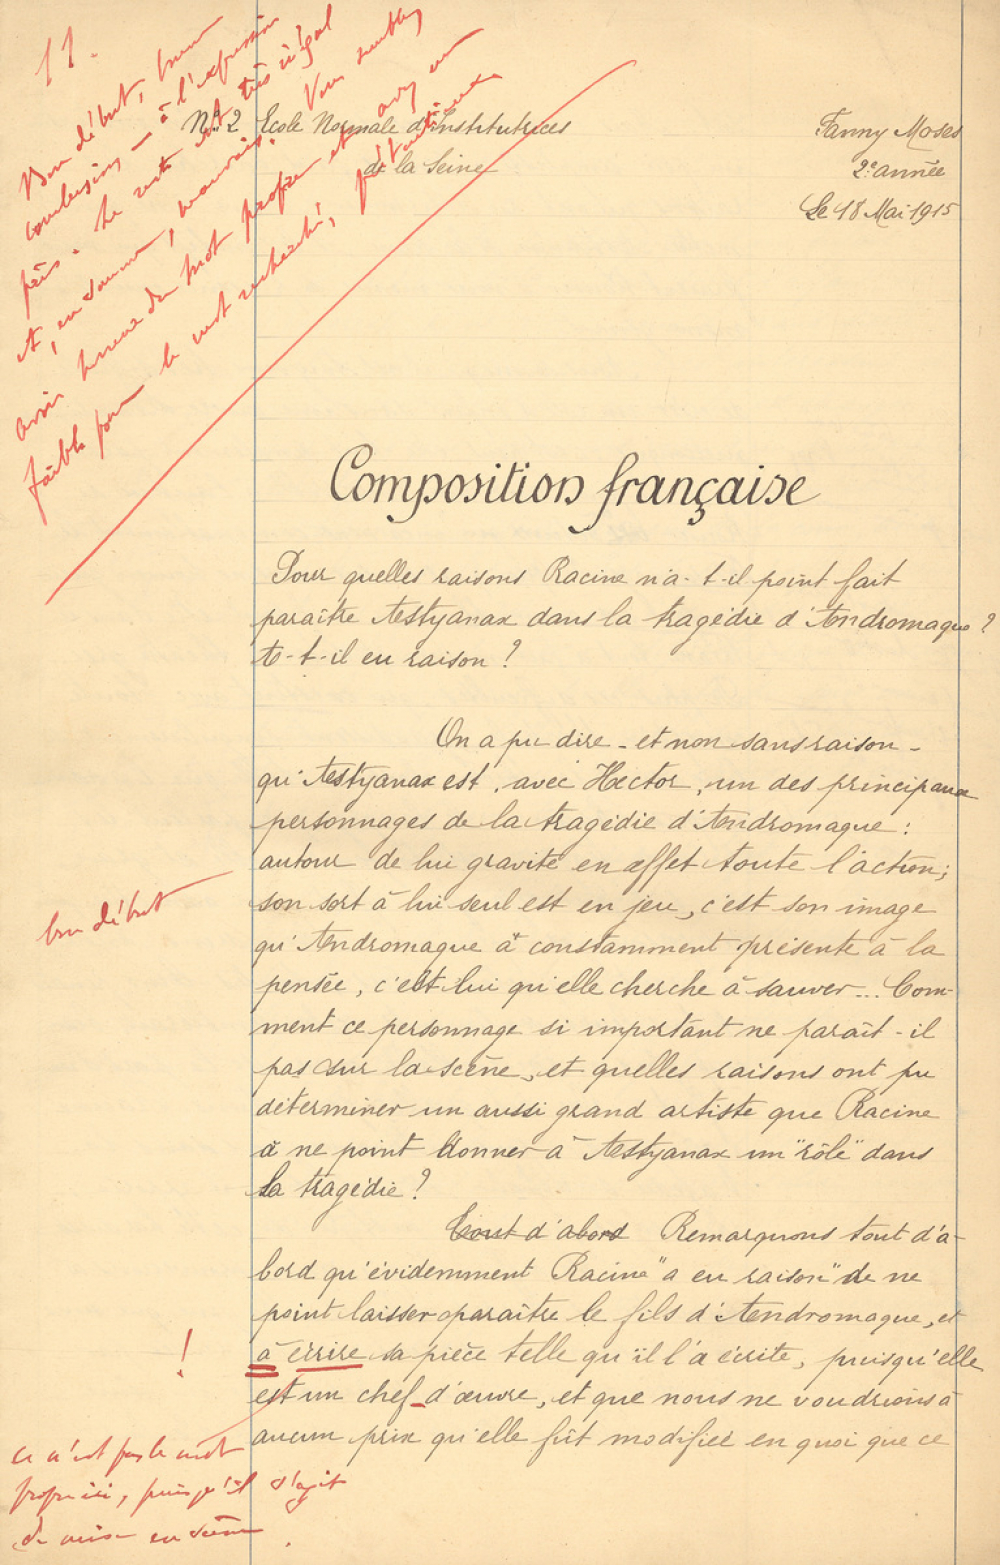 11.
Bon début, bonne
conclusion – à l'expression
près. Le reste est très inégal
et, en somme, mauvais. Vous semblez
avoir horreur du mot propre et avez un
faible pour le mot recherché, prétentieux
No 2 Ecole Normale d'Institutrices
de la Seine
Fanny Moses
2e année
Le 18 Mai 1915
Composition française
Pour quelles raisons Racine n'a-t-il point fait
paraître Astyanax dans la tragédie d'Andromaque ?
A-t-il eu raison ?
On a pu dire - et non sans raison -
qu'Astyanax est, avec Hector, un des principaux
personnages de la tragédie d'Andromaque :
autour de lui gravite en effet toute l'action ;
son sort à lui seul est en jeu, c'est son image
bon début
qu'Andromaque a constamment présente à la
pensée, c'est lui qu'elle cherche à sauver... Com-
ment ce personnage si important ne paraît-il
pas sur la scène, et quelles raisons ont pu
déterminer un aussi grand artiste que Racine
à ne point donner à Astyanax un "rôle" dans
la tragédie ?
Tout d'abord Remarquons tout d'a-
bord qu'évidemment Racine "a eu raison" de ne
point laisser paraître le fils d'Andromaque, et
!
à écrire sa pièce telle qu'il l'a écrite, puisqu'elle
est un chef-d'œuvre, et que nous ne voudrions à
aucun prix qu'elle fût modifiée en quoi que ce
ce n'est pas le mot
propre ici, puisqu'il s'agit
de mise en scène.